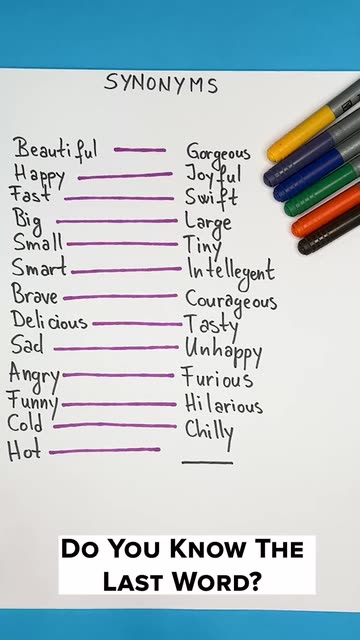 SYNONYMS
Beautiful Gorgeous
Happy Joyful
Fast Swift
Big Large
Small Tiny
Smart Intellegent
Brave Courageous
Delicious Tasty
Sad Unhappy
Angry Furious
Funny Hilarious
Cold Chilly
Hot
Do You Know The
Last Word?